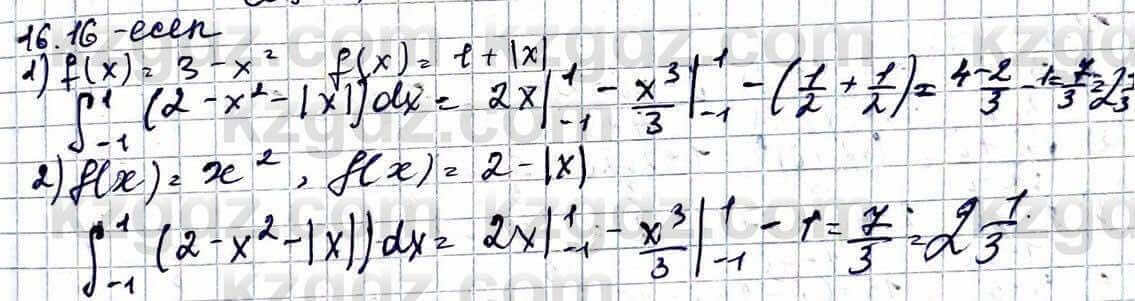 16.16-есеп
1) f(x) = 3 - x² f(x) = 1 + |x|
∫₋₁¹ (2 - x² - |x|) dx = 2x|₋₁¹ - x³/3|₋₁¹ - (1/2 + 1/2) = 4 - 2/3 - 1 = 7/3 = 2 1/3
2) f(x) = x², f(x) = 2 - |x|
∫₋₁¹ (2 - x² - |x|) dx = 2x|₋₁¹ - x³/3|₋₁¹ - 1 = 7/3 = 2 1/3